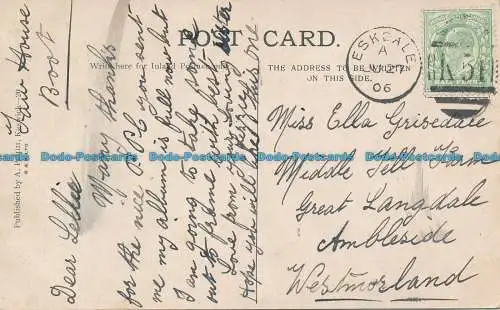 POST CARD.
Write here for Inland Postage
THE ADDRESS TO BE WRITTEN
ON THIS SIDE.
ESKDALE
A
06
K 51
Miss Ella Grisedale
Middle Fell Farm
Great Langdale
Ambleside
Westmorland
House
Boot
Dear
Many thanks
for the nice P.P.C you sent
me my album is full now but
I am going to take some
out to frame with
Love from your loving sister
Hope you will like this one
Published by A.
Dodo-Postcards Dodo-Postcards Dodo-Postcards Dodo-Postcards Dodo-Postcards